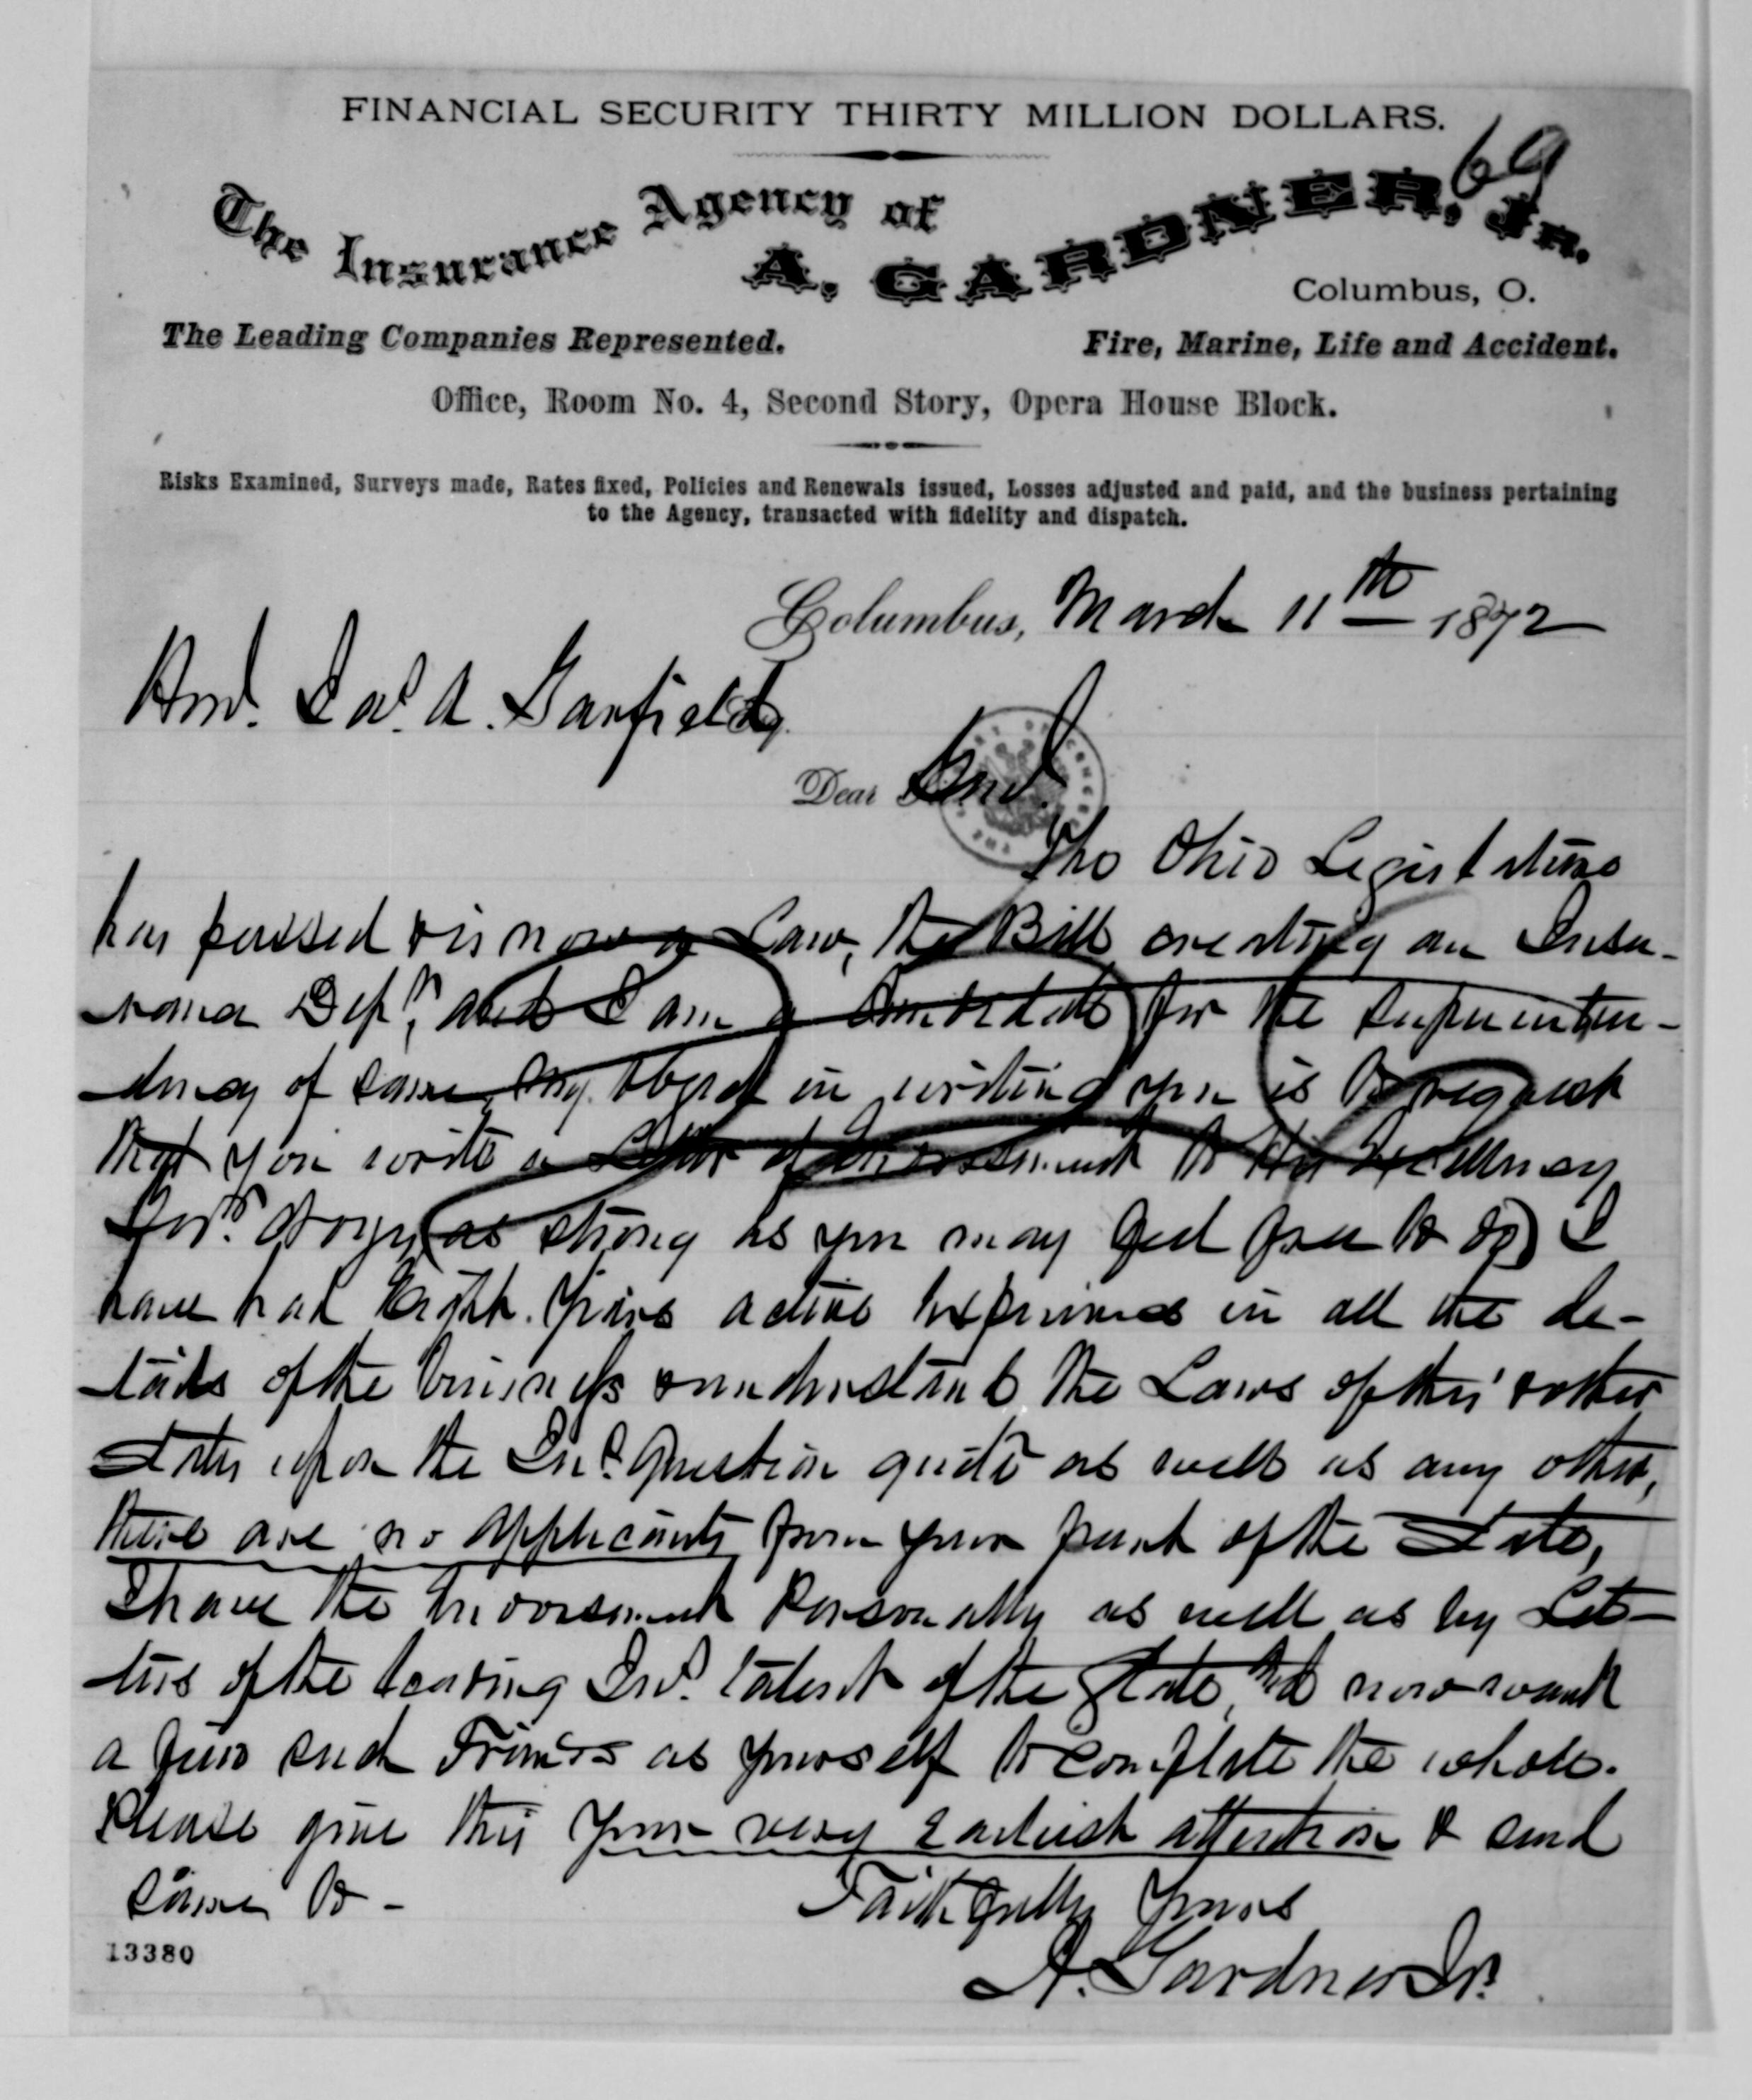 FINANCIAL SECURITY THIRTY MILLION DOLLARS.
69
The Insurance Agency of
A. GARDNER, JR.
Columbus, O.
The Leading Companies Represented.
Fire, Marine, Life and Accident.
Office, Room No. 4, Second Story, Opera House Block.
Risks Examined, Surveys made, Rates fixed, Policies and Renewals issued, Losses adjusted and paid, and the business pertaining
to the Agency, transacted with fidelity and dispatch.
Columbus, March 11th 1872
Hon. Jas. A. Garfield
Dear
The Ohio Legislature
has passed & is now a Law, the Bill creating an Insu-
rance Dept, and I am a Candidate for the Superinten-
dency of same, my object in writing you is to request
that you write a Letter of Endorsement to His Excellency
Gov. Noyes (as strong as you may feel free to do) I
have had Eight Years active Experience in all the de-
tails of the business & understand the Laws of this & other
States upon the Ins. Question quite as well as any other,
there are no applicants from your part of the State,
I have the Endorsement Personally as well as by Let-
ters of the leading Ins. talent of the State, & now want
a few such Friends as yourself to complete the whole.
Please give this your very Earliest attention & send
same to -
Faithfully Yours
A. Gardner Jr.
13380